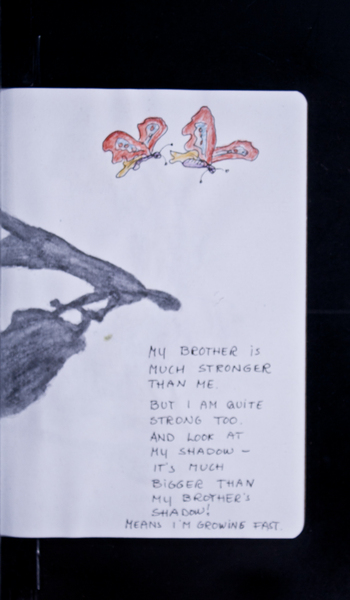 MY BROTHER IS
MUCH STRONGER
THAN ME.
BUT I AM QUITE
STRONG TOO.
AND LOOK AT
MY SHADOW –
IT'S MUCH
BIGGER THAN
MY BROTHER'S
SHADOW!
MEANS I'M GROWING FAST.